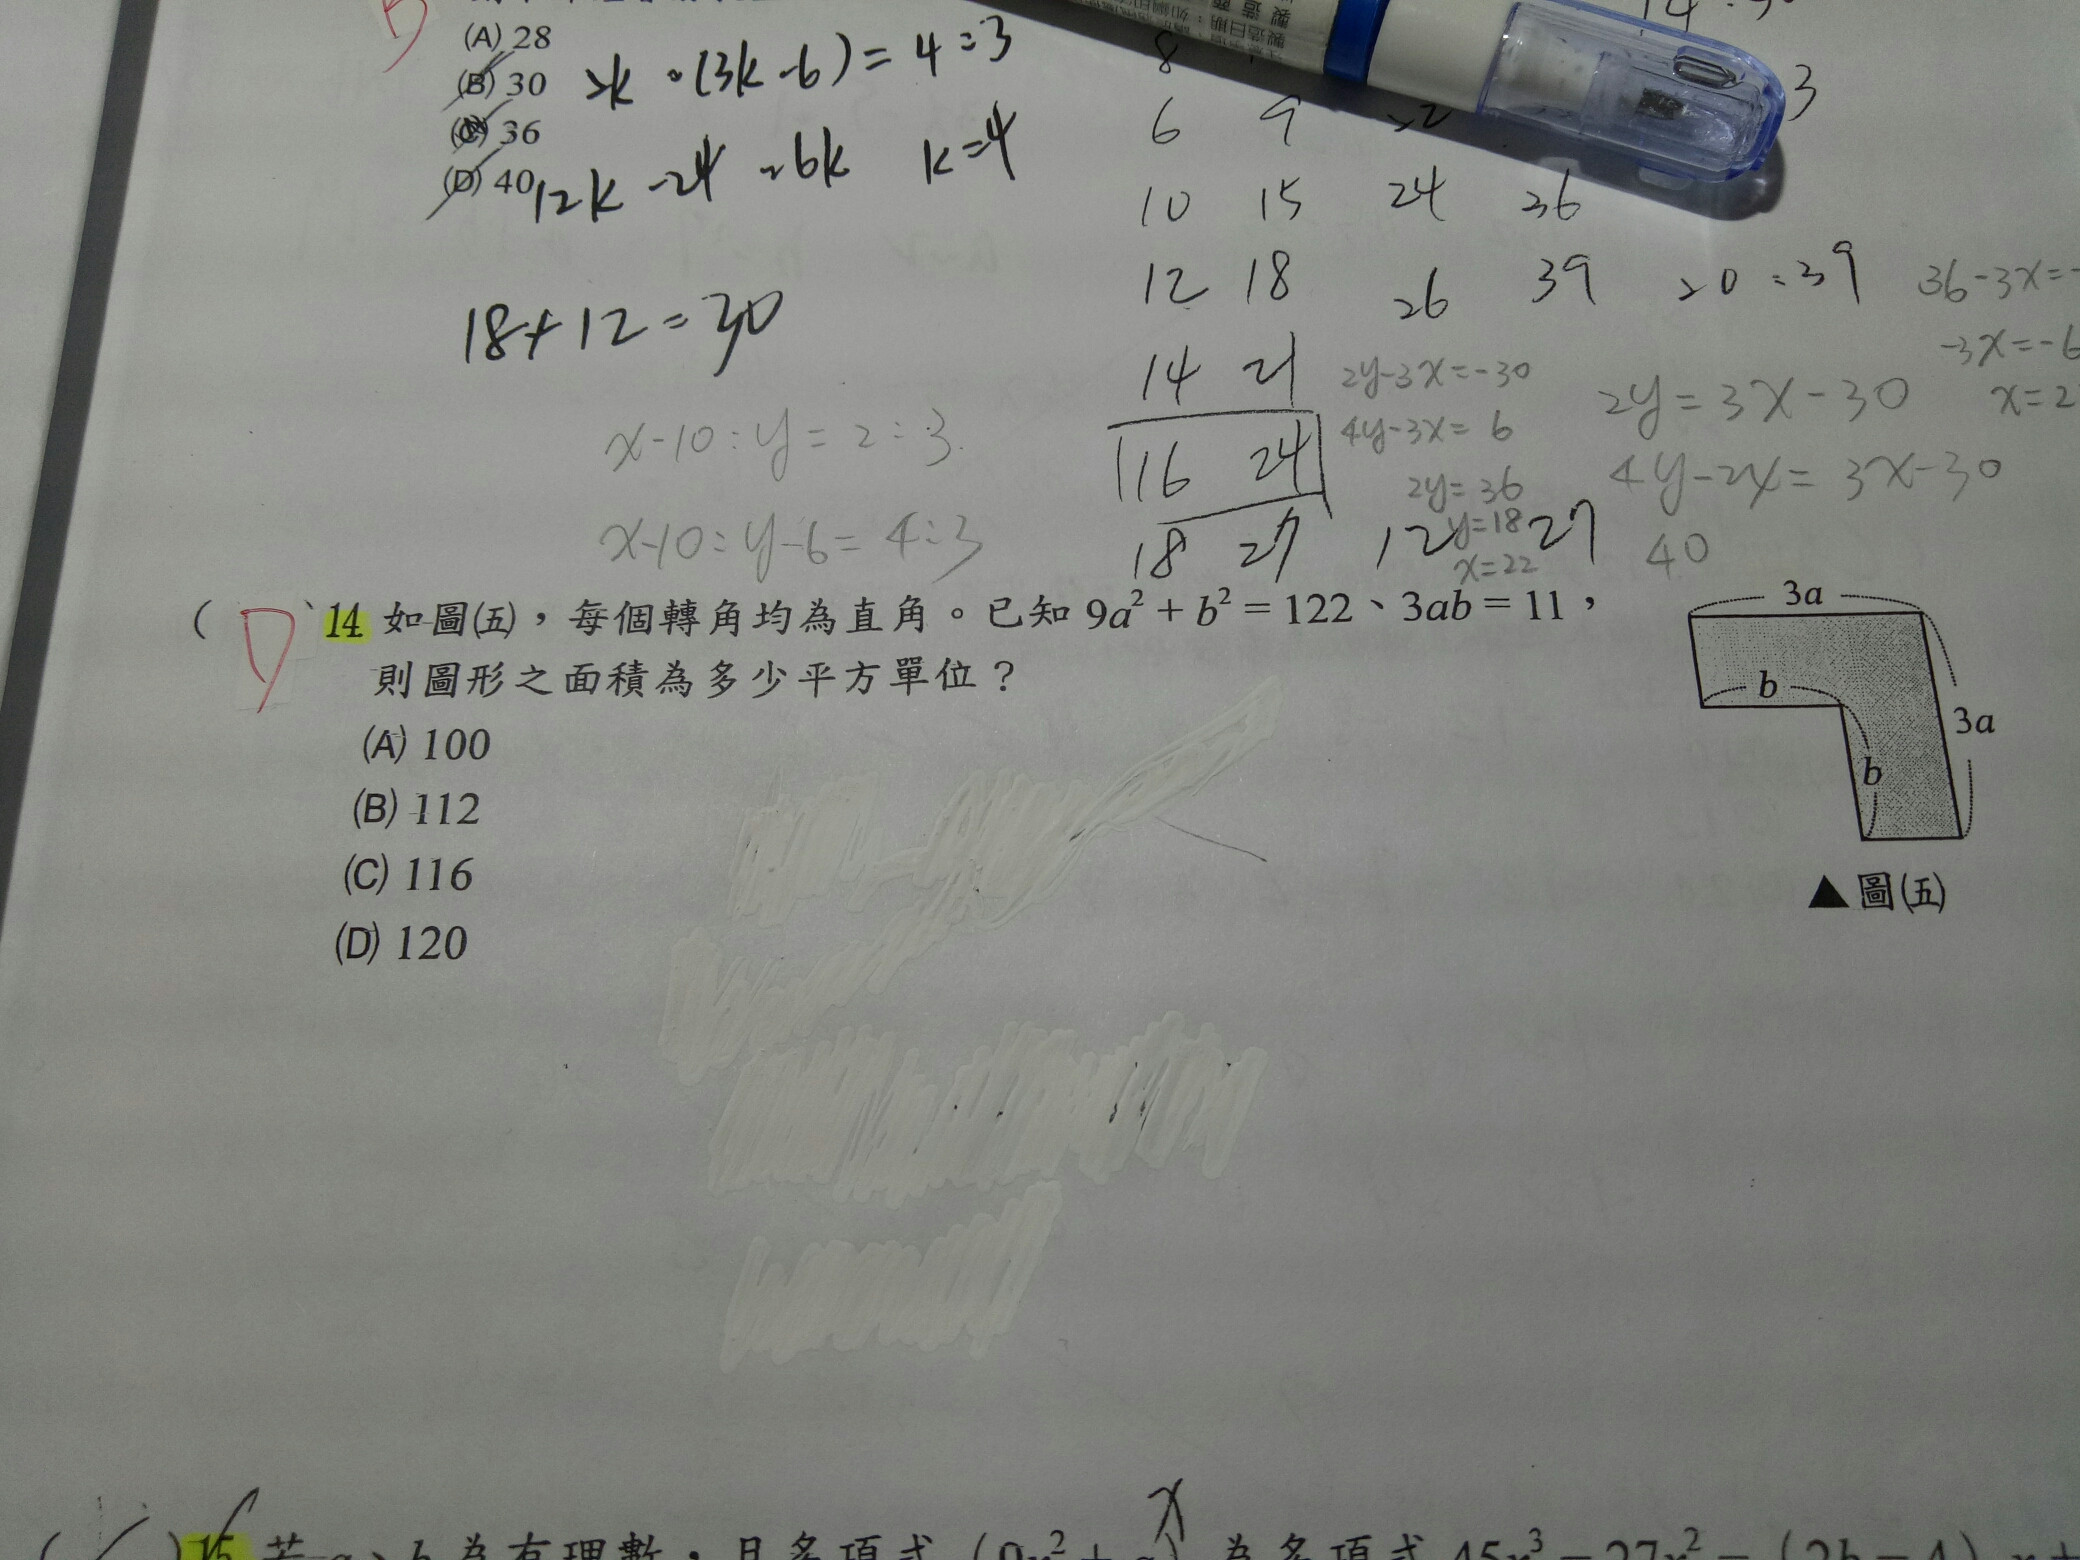 B
(A) 28
(B) 30
(C) 36
(D) 40
2k : (3k-6) = 4:3
12k -24 =6k k=4
18+12=30
8
6 9
10 15 24 36
12 18 26 39 20:39
14 21
16 24
18 27 12 27
3
36-3x=-
-3x=-6
x=2
2y-3x=-30
4y-3x= 6
2y= 36
y=18
x=22
2y=3x-30
4y-24= 3x-30
40
x-10:y=2:3
x-10:y-6=4:3
( D )14 如圖(五),每個轉角均為直角。已知 9a² + b² = 122、3ab = 11,
則圖形之面積為多少平方單位?
(A) 100
(B) 112
(C) 116
(D) 120
3a
b
3a
b
▲圖(五)
x
15 若 a、b 為有理數,且多項式 (9x² + a) 為多項式 45x³ − 27x² − (2b − 4) x +